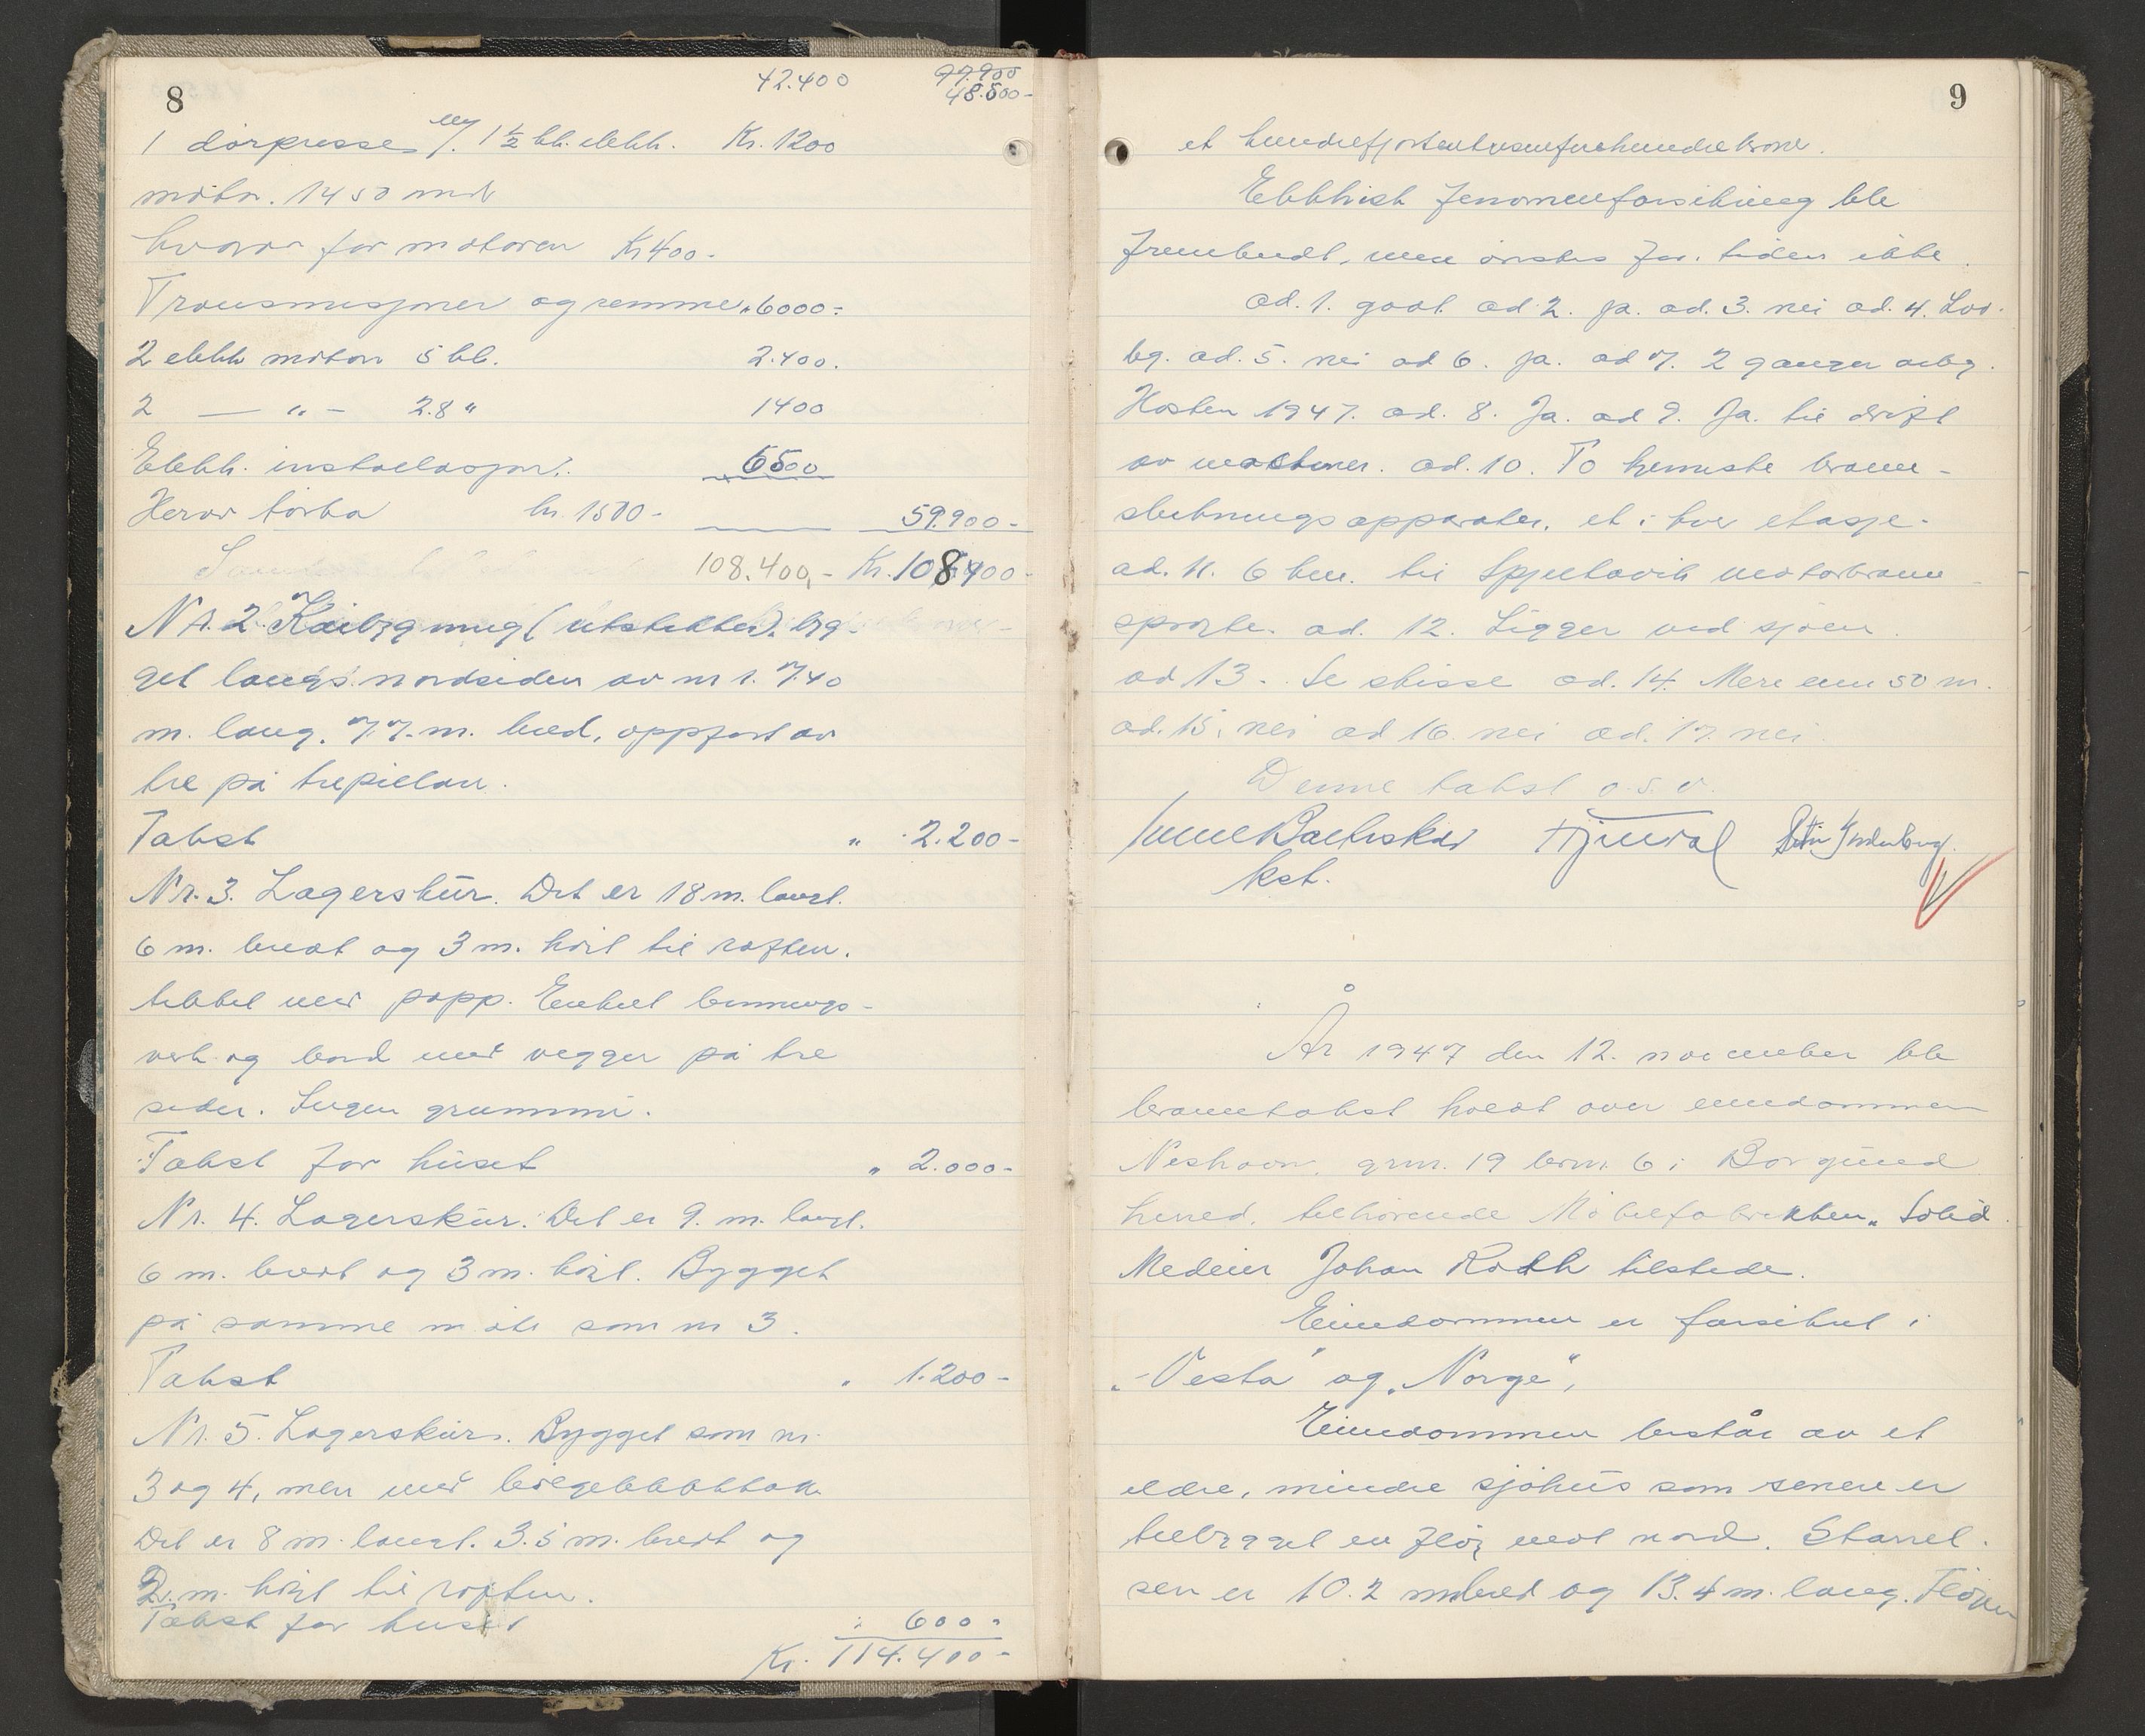 8
42.400 99.900
48.500-
1 dørpresse m/. 1 1/2 hk. elekh. Kr. 1200
motor. 1450 omdr
hvorav for motoren Kr 400.-
Transmisjoner og remmer " 6000.-
2 elekh motorer 5 hk. 2.400.
2 — " — 2.8 " 1400
Elekh. installasjon. 6500
Herav tørka kr. 1500.- 59.900-
108.400,- Kr. 108.400-
Nr. 2. Kaibygning (utstikker). byg-
get langs nordsiden av nr 1. 7.40
m. lang. 7.7. m. bred, oppført av
tre på trepeler.
Takst " 2.200-
Nr. 3. Lagerskur. Det er 18 m. langt.
6 m. bredt og 3 m. høit til raften.
tekket med papp. Enkelt binnings-
verk og bord med vegger på tre
sider. Ingen grunnmur.
Takst for huset " 2.000-
Nr. 4. Lagerskur. Det er 9. m. langt.
6 m. bredt og 3 m. høit. Bygget
på samme måte som nr 3.
Takst " 1.200-
Nr. 5. Lagerskur. Bygget som nr.
3 og 4, men med bølgeblikktak
Det er 8 m. langt. 3.5 m. bredt og
2. m. høit til raften.
Takst for huset " 600-
Kr. 114.400-
9
et hundrefjortentusenfirehundre kroner.
Elektrisk fenomenforsikring ble
frembudt, men ønskes for tiden ikke.
ad. 1. godt ad 2. ja. ad. 3. nei ad. 4. Lov-
lig. ad. 5. nei ad 6. ja. ad 7. 2 ganger årlig.
Høsten 1947. ad. 8. Ja. ad 9. Ja. til drift
av maskiner. ad. 10. To kjemiske brann-
slukningsapparater, et i hver etasje.
ad. 11. 6 km. til Spjelkavik motorbrann-
sprøyte. ad. 12. Ligger ved sjøen.
ad 13. Se skisse ad. 14. Mere enn 50 m.
ad. 15. nei ad 16. nei ad. 17. nei.
Denne takst o.s.v.
kst.
År 1947 den 12. november ble
branntakst holdt over eiendommen
gnr. 19 brnr. 6 i Borgund
herred, tilhørende Møbelfabrikken „Solid.
Medeier Johan Roth tilstede.
Eiendommen er forsikret i
„Vesta" og „Norge",
Eiendommen består av et
eldre, mindre sjøhus som senere er
tilbygget en fløy mot nord. Størrel-
sen er 10.2 m bred og 13.4 m. lang. Fløyen